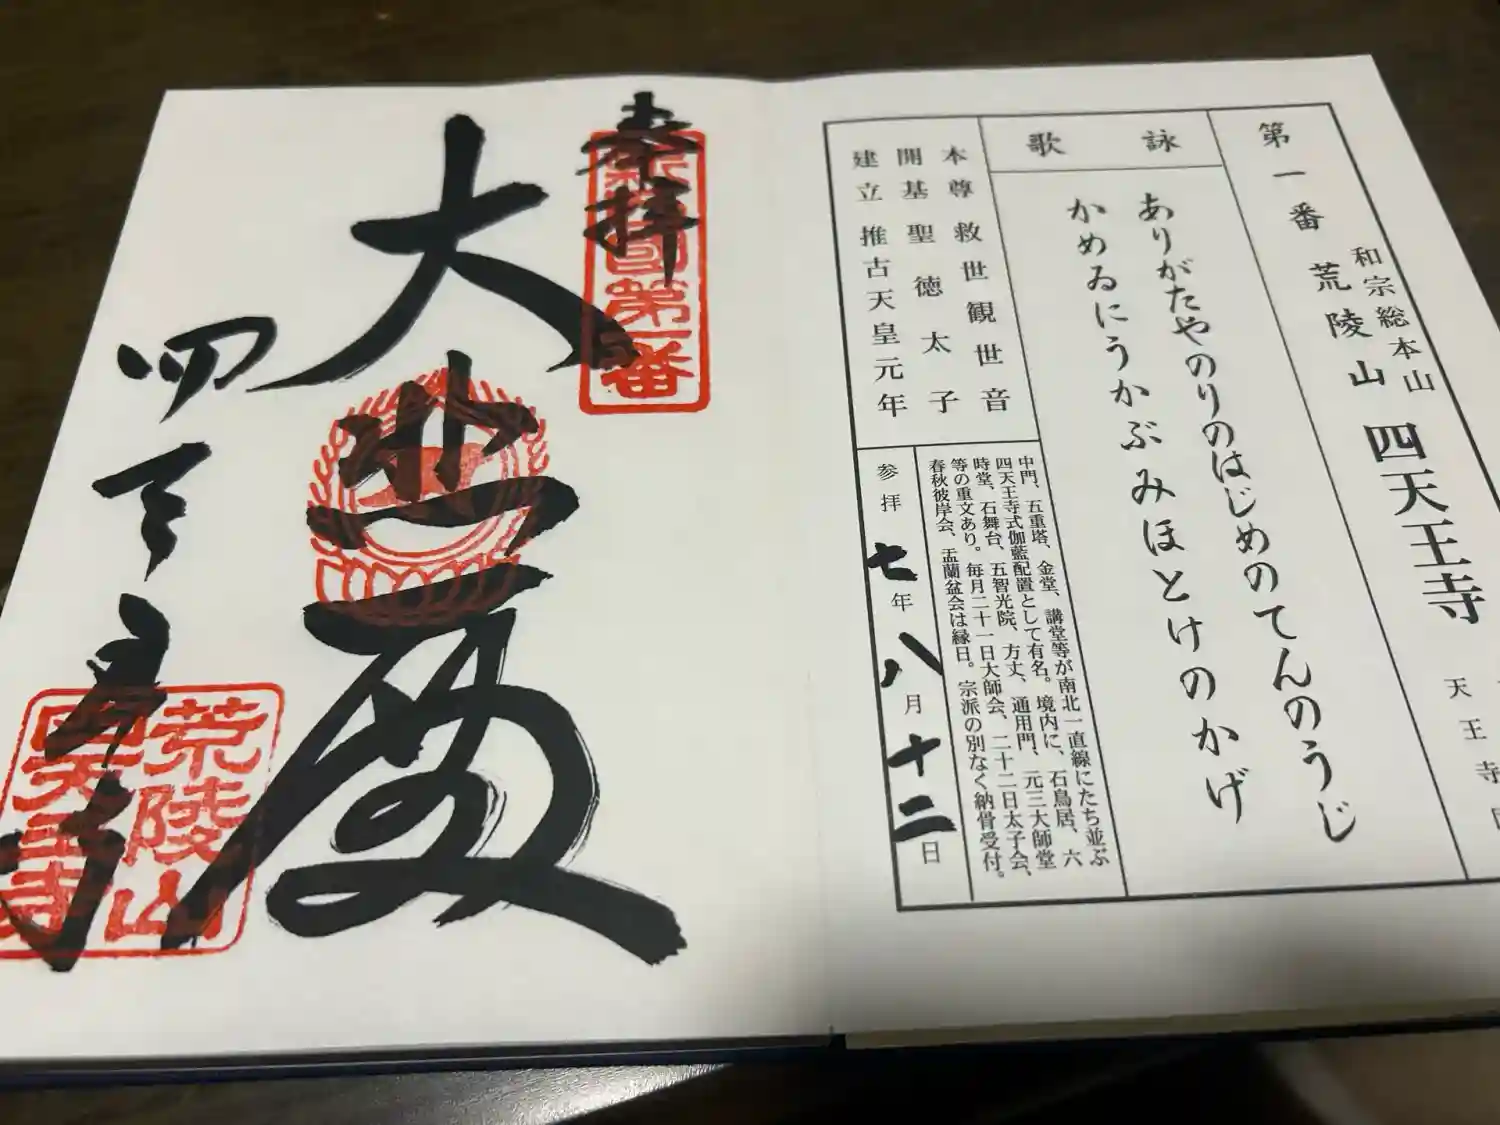 第一番
和宗総本山
荒陵山 四天王寺
天王寺
詠歌
ありがたやのりのはじめのてんのうじ
かめゐにうかぶみほとけのかげ
本尊 救世観世音
開基 聖徳太子
建立 推古天皇元年
中門、五重塔、金堂、講堂等が南北一直線にたち並ぶ
四天王寺式伽藍配置として有名。境内に、石鳥居、六
時堂、石舞台、五智光院、方丈、通用門、元三大師堂
等の重文あり。毎月二十一日大師会、二十二日太子会、
春秋彼岸会、盂蘭盆会は縁日。宗派の別なく納骨受付。
参拝 七年八月十二日
奉拝
新西国第一番
大悲殿
四天王寺
荒陵山
四天王寺